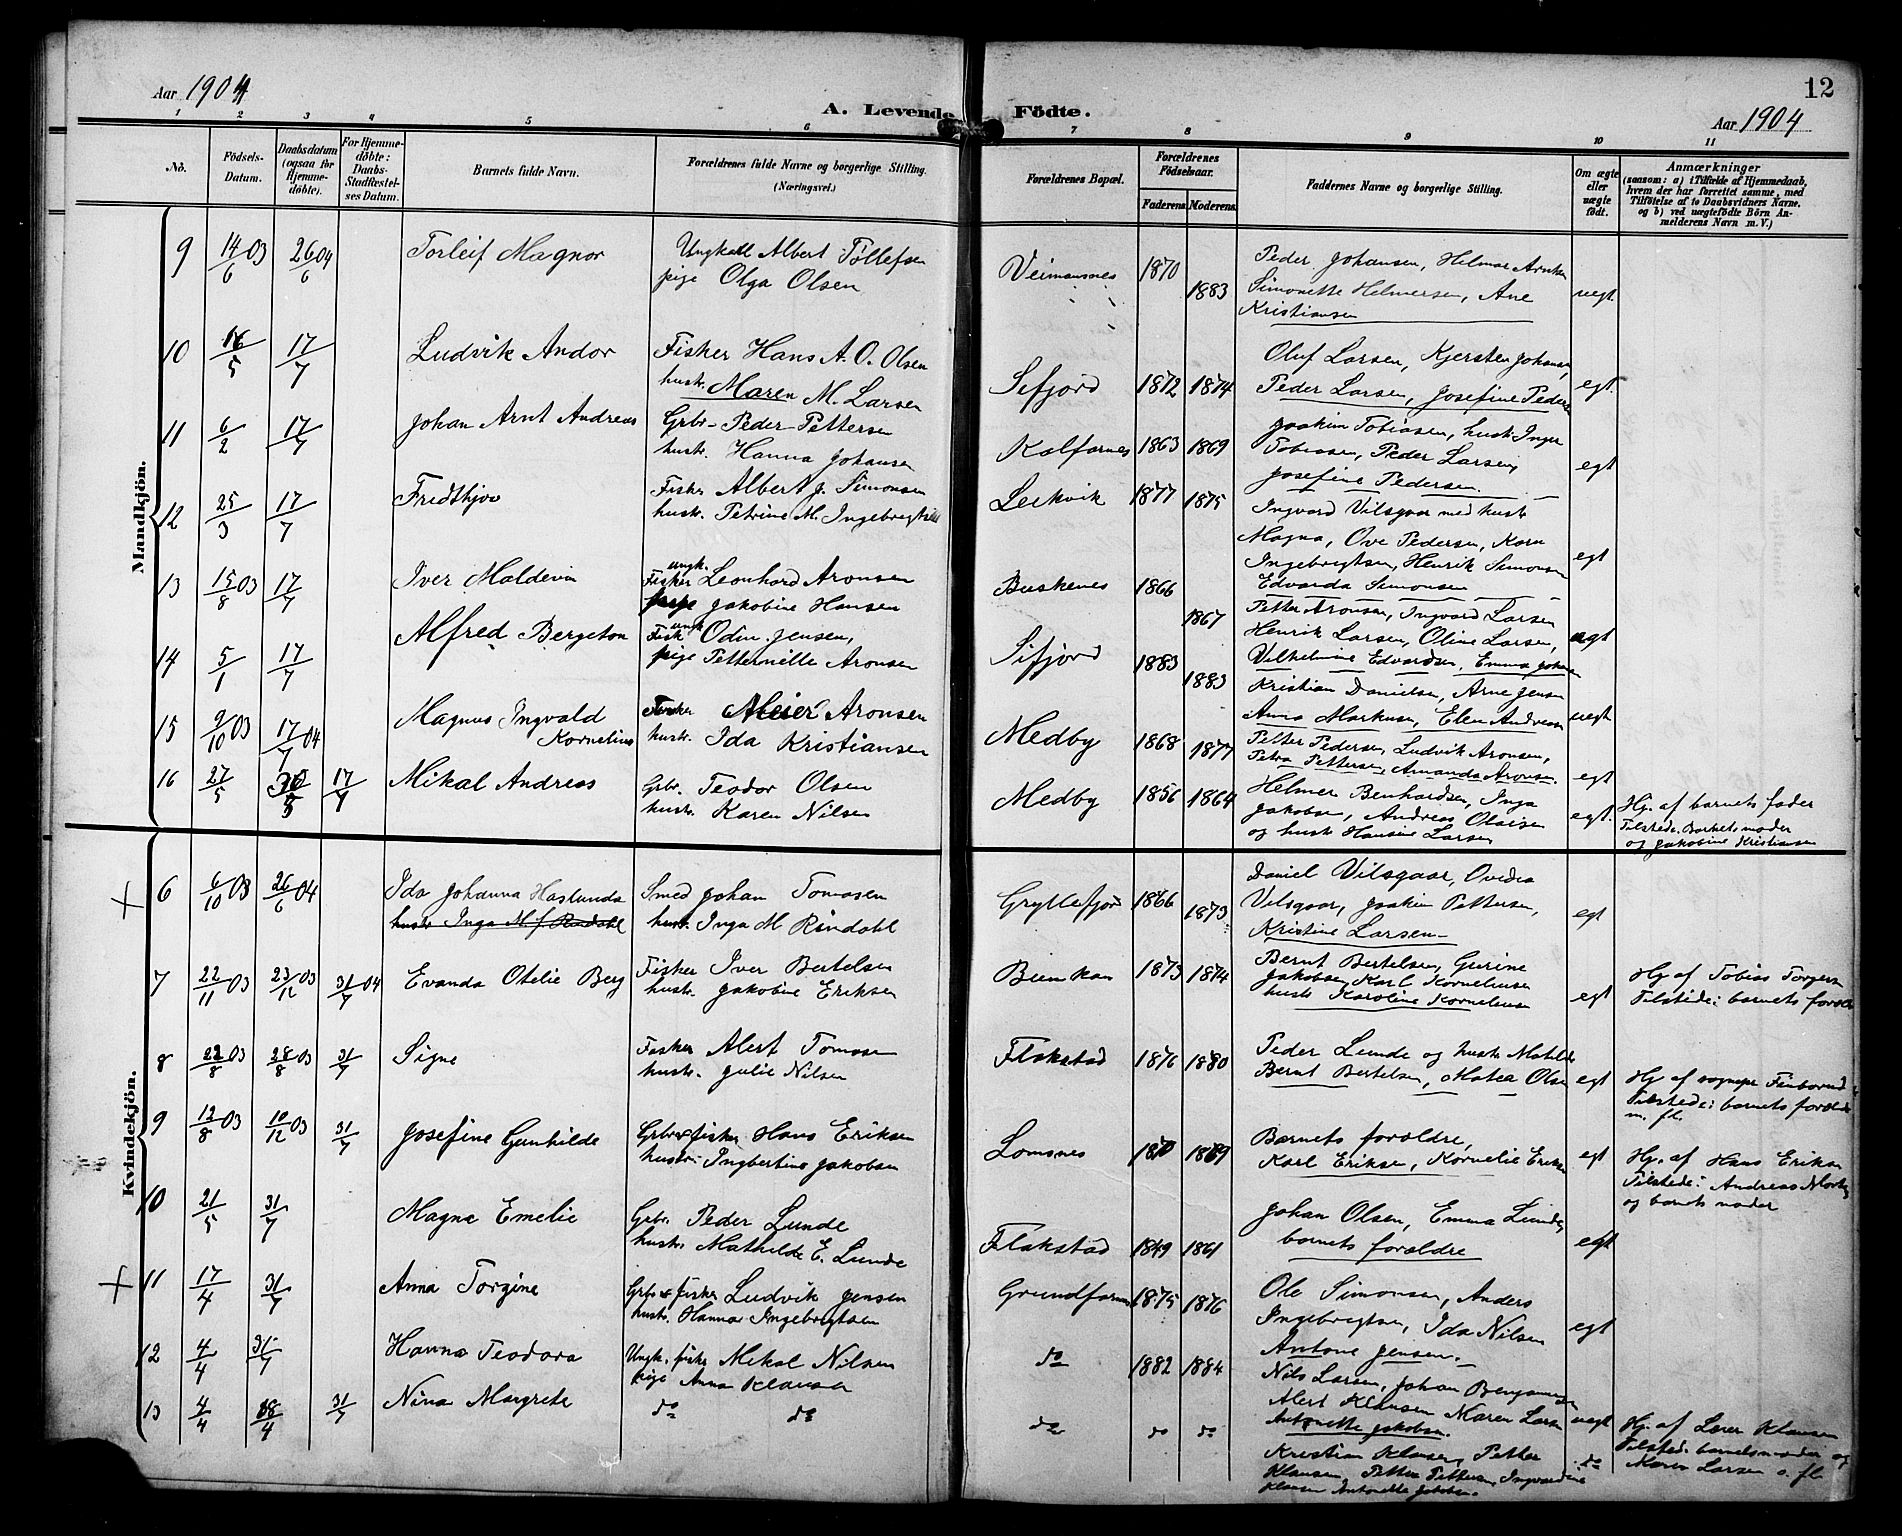 Aar 1904
A. Levende Födte.
Aar 1904
12
1 2 3 4 5 6 7 8 9 10 11
No.
Födsels-Datum.
Daabsdatum (ogsaa for Hjemme-döbte).
For Hjemme-döbte: Daabs-Stadfæstel-ses Datum.
Barnets fulde Navn.
Forældrenes fulde Navne og borgerlige Stilling. (Næringsvei.)
Forældrenes Bopæl.
Forældrenes Födselsaar.
Faderens. Moderens.
Faddernes Navne og borgerlige Stilling.
Om ægte eller uægte födt.
Anmærkninger
(saasom: a) i Tilfælde af Hjemmedaab,
hvem der har forrettet samme, med
Tilföielse af to Daabsvidners Navne,
og b) ved uægtefödte Börn An-
melderens Navn m. V.)
Mandkjön.
9 14/6 03 26/6 04 Torleif Magnor
Ungkall Albert Tollefsen
pige Olga Olsen
1870 1883
Peder Johansen, Helmar
Simonette Helmersen, Ane
Kristiansen
uegt.
10 16/5 17/7 Ludvik Andor
Fisker Hans A. O. Olsen
hustr. Maren M. Larsen
Sifjord 1872 1874
Oluf Larsen, Kjersten Johans
Peder Larsen, Josefine Peders
egt.
11 6/2 17/7 Johan Arnt Andreas
Grbr. Peder Pettersen
hustr. Hanna Johansen
Kalfarnes 1863 1869
Joakim Tobiasen, hustr Inger
Tobiasen, Peder Larsen,
Josefine Pedersen.
egt
12 25/3 17/7 Fredthjov
Fisker Albert J. Simonsen
hustr. Petrine M. Ingebregtsen
Leikvik 1877 1875
Ingvard Vilsgaar med hustr
Magna, Ove Pedersen, Karn
Ingebregtsen, Henrik Simonsen
Edvarda Simonsen
egt
13 15/8 03 17/7 Iver Maldevin
ungk.
Fisker Leonhard Aronsen
pige Jakobine Hansen
Buskenes 1866 1867
Petter Aronsen, Ingvard Larsen
Henrik Larsen, Oline Larsen,
Vilhelmine Edvardsen, Emma Johan
uegt
14 5/1 17/7 Alfred Bergeton
Fisk ungk Odin Jensen,
pige Petternille Aronsen
Sifjord 1883 1883
Kristian Danielsen, Arne Jensen
Anna Markusen, Elen Andreasen
uegt
15 9/10 03 17/7 04 Magnus Ingvald
Kornelius
Fisker Meier Aronsen
hustr. Ida Kristiansen
Medby 1868 1877
Petter Pedersen, Ludvik Aronsen,
Petra Pettersen, Amanda Aronsen.
egt
16 27/5 30/5 17/7 Mikal Andreas
Grbr. Teodor Olsen
hustr. Karen Nilsen
Medby 1856 1864
Helmer Benhardsen, Inga
Jakobsen, Andreas Olaisen
og hustr Hansine Larsen
egt.
Hj. af barnets fader
Tilstede: Barnets moder
og Jakobine Kristiansen
Kvindekjön.
6 6/10 03 26/6 04 Ida Johanna Haslunda
Smed Johan Tomasen
hustr. Inga M Rindahl
Gryllefjord 1866 1873
Daniel Vilsgaar, Ovedia
Vilsgaar, Joakim Pettersen,
Kristine Larsen
egt
7 22/11 03 23/12 03 31/7 04 Evanda Otelie Berg
Fisker Iver Bertelsen
hustr. Jakobine Eriksen
1873 1874
Bernt Bertelsen, Gurine
Jakobsen, Karl Korneliusen
hustr Karoline Korneliusen
egt
Hj af Tobias Torgers
Tilstede: barnets forældr
8 22/8 03 28/8 03 31/7 Signe
Fisker Alert Tomasen
hustr. Julie Nilsen
Flakstad 1876 1880
Peder Lunde og hustr Matilde
Bernt Bertelsen, Matea Olsen
egt
Tilstede: barnets forældr
m. fl.
9 12/8 03 10/12 03 31/7 Josefine Gunhilde
Grbr & fisker Hans Eriksen
hustr. Ingbertine Jakobsen
Lomsnes
Barnets forældre,
Karl Eriksen, Kornelie Eriksen
egt
Hj. af Hans Eriksen
Tilstede: Andreas
og barnets moder
10 21/5 31/7 Magna Emelie
Grbr. Peder Lunde
hustr. Mathilde E. Lunde
Flakstad 1849 1861
Johan Olsen, Emma Lunde,
barnets forældre
egt
11 17/4 31/7 Anna Torgine
Grbr & fisker Ludvik Jensen
hustr. Hanna Ingebregtsen
Grundfarnes 1875 1876
Ole Simonsen, Anders
Ingebregtsen, Ida Nilsen
Antone Jensen.
egt
12 4/4 31/7 Hanna Teodora
Ungk. fisker Mikal Nilsen
pige Anna Klausen
do 1882 1884
Nils Larsen, Johan Benjaminsen
Alert Klausen Maren Larsen
Antonette Jakobsen.
uegt
13 4/4 31/7 Nina Margrete
do do
do do do
Kristian Klausen, Petter
Klausen, Petter Pettersen, Ingvardine
Klausen Antonette Jakobsen.
do
Hj. af Lærer Klausen
Tilsted. barnets moder og
Maren Larsen o. fl